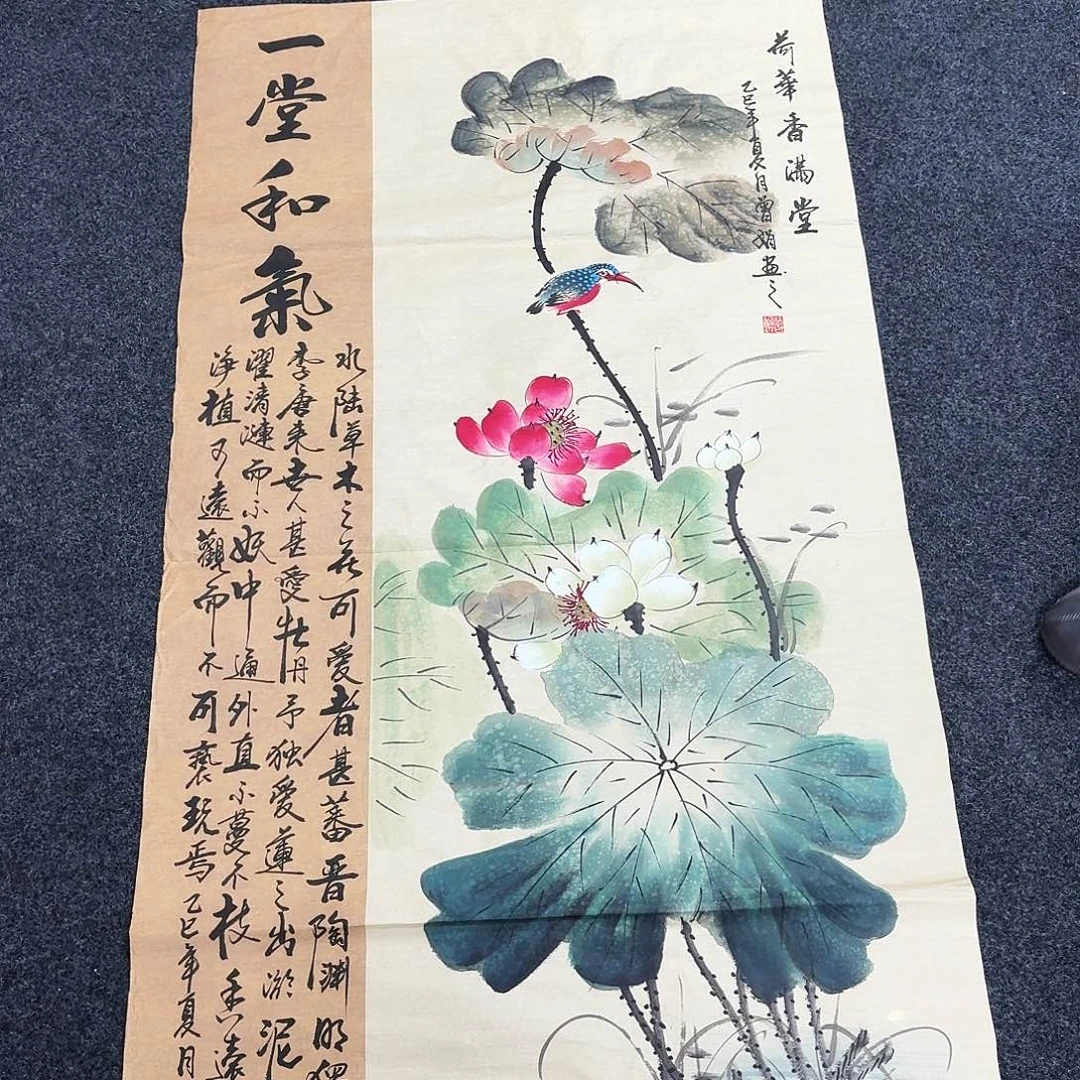 荷華香滿堂
乙巳年夏月曾娟画之
一堂和氣
水陆草木之花可愛者甚蕃晋陶渊明独
李唐来世人甚愛牡丹予独愛蓮之出淤泥
濯清漣而不妖中通外直不蔓不枝香遠
净植可遠觀而不可褻玩焉乙巳年夏月